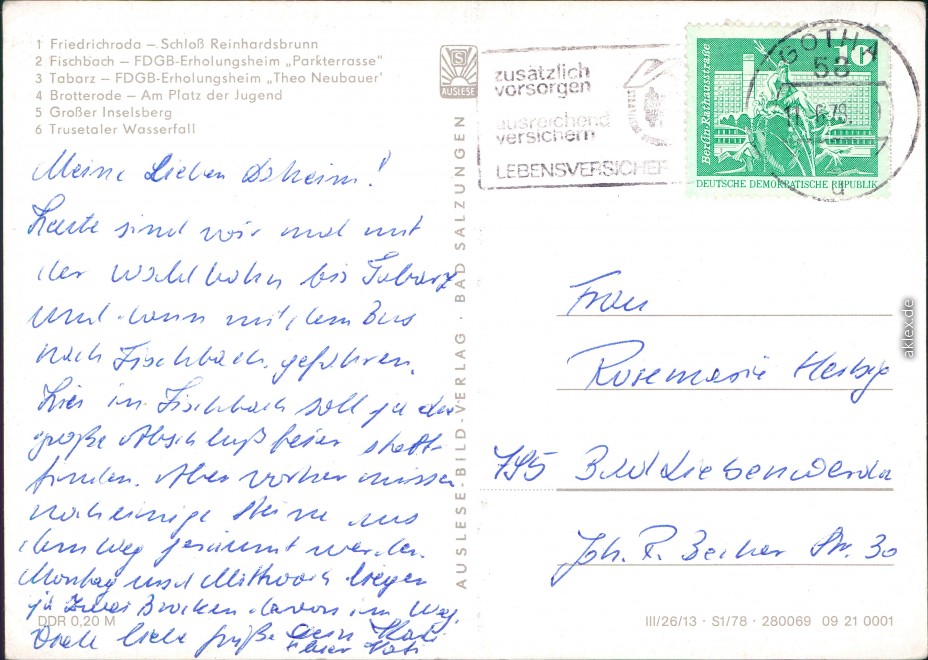 1 Friedrichroda – Schloß Reinhardsbrunn
2 Fischbach – FDGB-Erholungsheim „Parkterrasse"
3 Tabarz – FDGB-Erholungsheim „Theo Neubauer'
4 Brotterode – Am Platz der Jugend
5 Großer Inselsberg
6 Trusetaler Wasserfall
S
AUSLESE
zusätzlich
vorsorgen
ausreichend
versichern
LEBENSVERSICHER
GOTHA
58
10
Berlin-Rathausstraße
DEUTSCHE DEMOKRATISCHE REPUBLIK
Meine Lieben Daheim!
Heute sind wir mal mit
der Waldbahn bis Tabarz
und dann mit dem Bus
nach Fischbach gefahren.
Hier in Fischbach soll ja die
große Abschlußfeier statt-
finden. Aber vorher müssen
noch einige Steine aus
dem Weg geräumt werden.
Montag und Mittwoch liegen
ja zwei Brocken davon im Weg.
Viele liebe Grüße
DDR 0,20 M
AUSLESE-BILD-VERLAG · BAD SALZUNGEN
Frau
Rosemarie
795 Bad Liebenwerda
Joh. R. Becher Str. 30
III/26/13 · S1/78 · 280069 09 21 0001
aklex.de